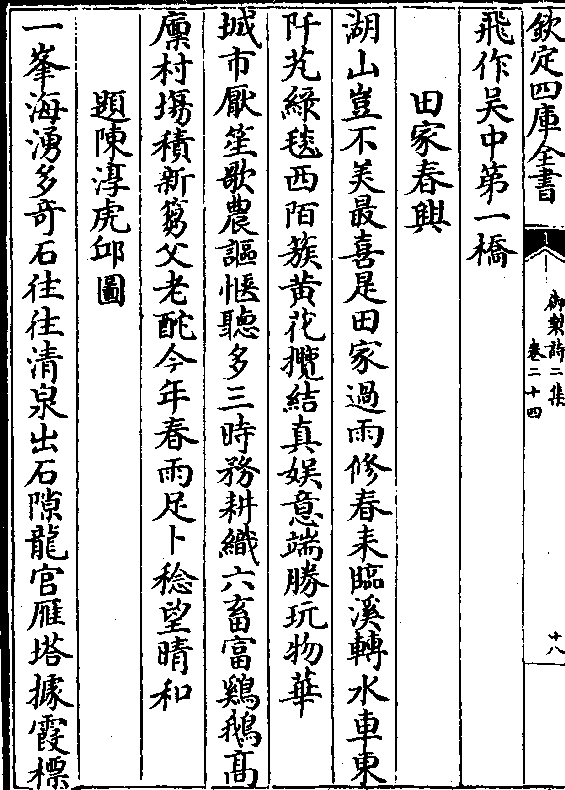 欽定四庫全書
御製詩二集
卷二十四
十八
飛作吳中第一橋
田家春興
湖山豈不美最喜是田家過雨修春耒臨溪轉水車東
阡尨綠毯西陌簇黄花攬結真娯意端勝玩物華
城市厭笙歌農謳愜聽多三時務耕織六畜富鷄鵝高
廪村塲積新篘父老酡今年春雨足卜稔望晴和
題陳淳虎邱圖
一峯海湧多竒石往往清泉出石隙龍宫雁塔據霞標